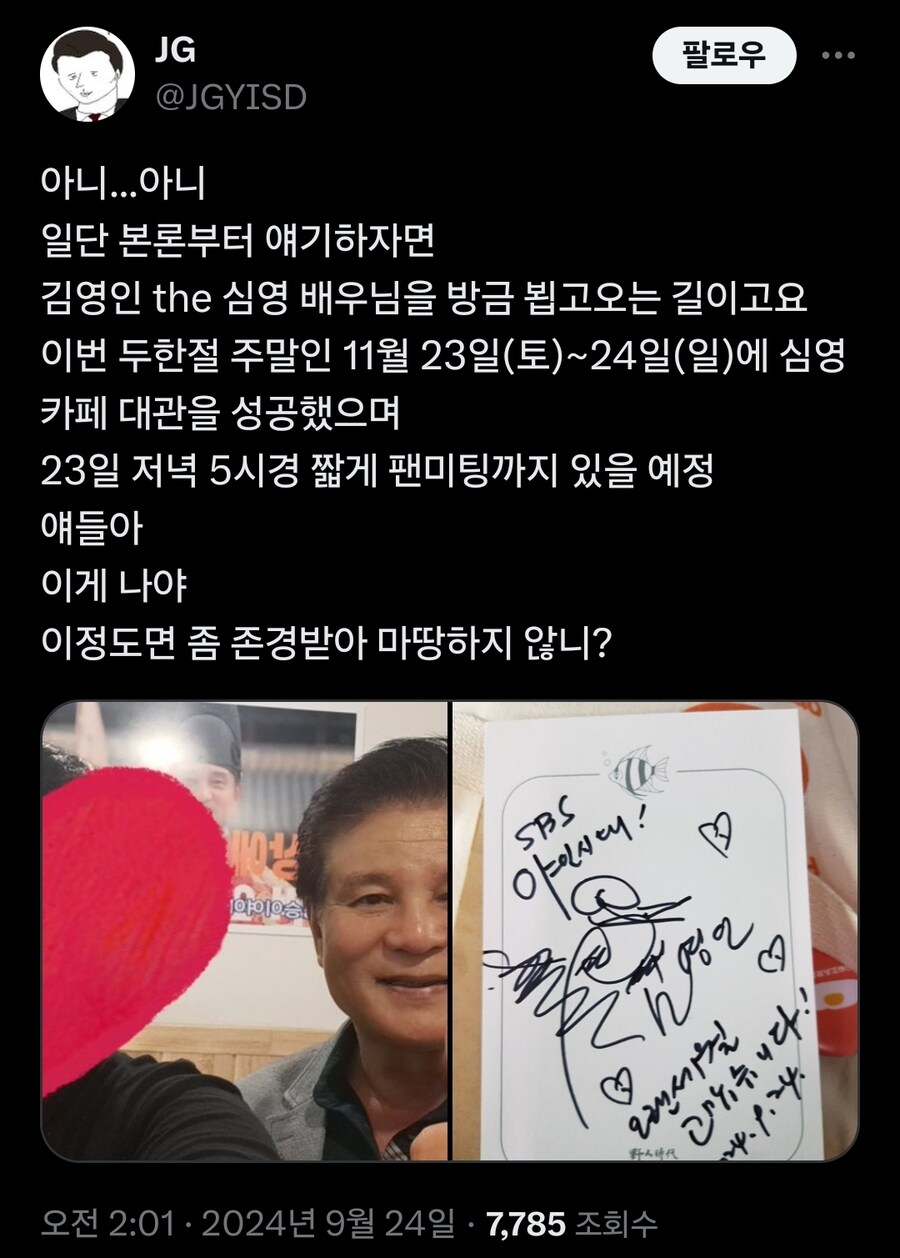 JG
@JGYISD
팔로우
아니...아니
일단 본론부터 얘기하자면
김영인 the 심영 배우님을 방금 뵙고오는 길이고요
이번 두한절 주말인 11월 23일(토)~24일(일)에 심영
카페 대관을 성공했으며
23일 저녁 5시경 짧게 팬미팅까지 있을 예정
얘들아
이게 나야
이정도면 좀 존경받아 마땅하지 않니?
SBS
야인시대!
김영인
24.9.24.
野人時代
오전 2:01 · 2024년 9월 24일 · 7,785 조회수